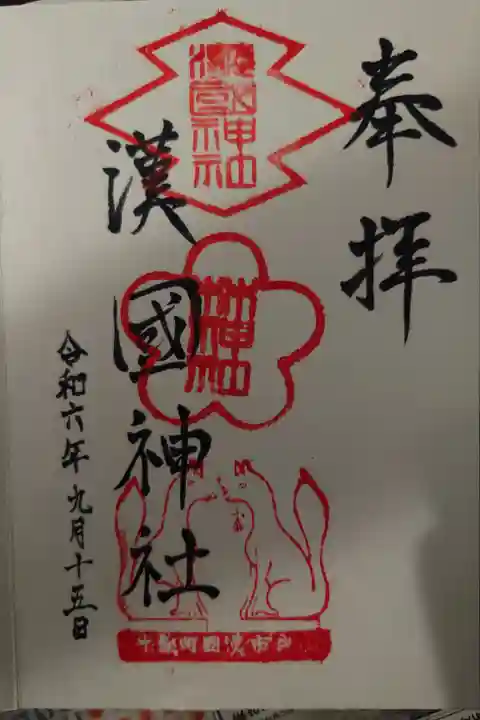 奉拝
漢國神社
令和六年九月十五日
漢國神社
神社